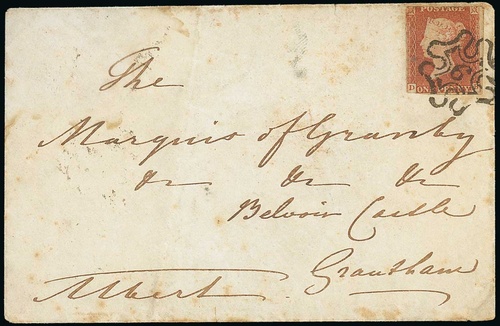 POSTAGE
The
Marquis of Granby
&c &c &c
Belvoir Castle
Grantham
Albert